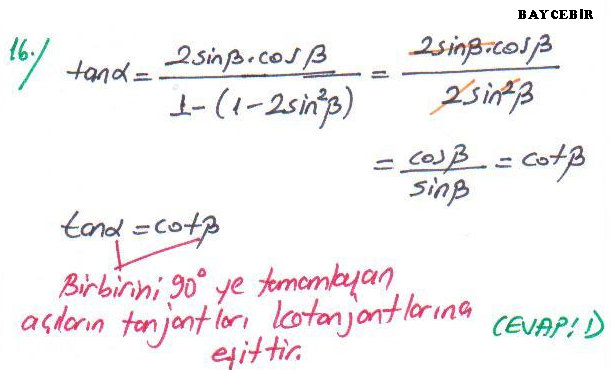 BAYCEBİR
16./ tanα = 2sinβ.cosβ / 1-(1-2sin²β) = 2sinβ.cosβ / 2sin²β
= cosβ / sinβ = cotβ
tanα = cotβ
Birbirini 90° ye tamamlayan
açıların tanjantları kotanjantlarına
eşittir.
CEVAP: 1)